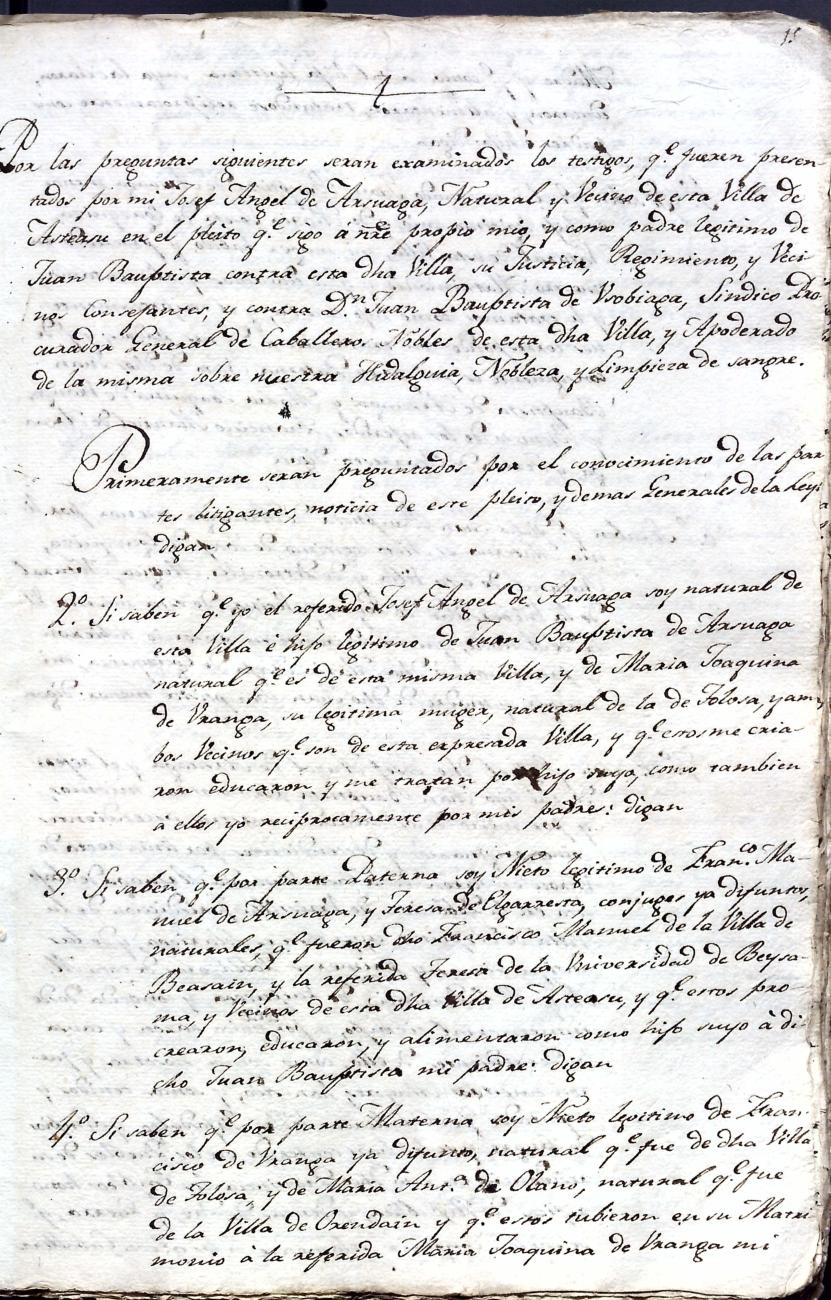 15
Por las preguntas siguientes seran examinados los testigos, q.e fueren presen-
tados por mi Josef Angel de Arsuaga, Natural y Vecino de esta Villa de
Asteasu en el pleito q.e sigo á nre propio mio, y como padre legitimo de
Juan Bauptista contra esta dha Villa, su Justicia, Regimiento, y Veci-
nos Consejantes, y contra D.n Juan Bauptista de Vsobiaga, Sindico Pro-
curador General de Caballeros Nobles de esta dha Villa, y Apoderado
de la misma sobre nuestra Hidalguia, Nobleza, y Limpieza de sangre.
Primeramente seran preguntados por el conocimiento de las par
tes litigantes, noticia de este pleito, y demas Generales de la Ley:
digan
2.o Si saben q.e yo el referido Josef Angel de Arsuaga soy natural de
esta Villa é hijo legitimo de Juan Bauptista de Arsuaga
natural q.e es de esta misma Villa, y de Maria Joaquina
de Vranga, su legitima muger, natural de la de Tolosa, y am-
bos Vecinos q.e son de esta expresada Villa, y q.e estos me cria-
ron educaron y me tratan por hijo suyo, como tambien
á ellos yo reciprocamente por mis padres: digan
3.o Si saben q.e por parte Paterna soy Nieto legitimo de Fran.co Ma-
nuel de Arsuaga, y Teresa de Elgarresta, conjuges ya difuntos,
naturales, q.e fueron dho Francisco Manuel de la Villa de
Beasain, y la referida Teresa de la Vniversidad de Beysa-
ma, y Vecinos de esta dha Villa de Asteasu, y q.e estos pro-
crearon, educaron, y alimentaron como hijo suyo á di-
cho Juan Bauptista mi padre: digan
4.o Si saben q.e por parte Materna soy Nieto legitimo de Fran-
cisco de Vranga ya difunto, natural q.e fue de dha Villa
de Tolosa, y de Maria Ant.a de Olano, natural q.e fue
de la Villa de Orendain y q.e estos tubieron en su Matri
monio á la referida Maria Joaquina de Vranga mi